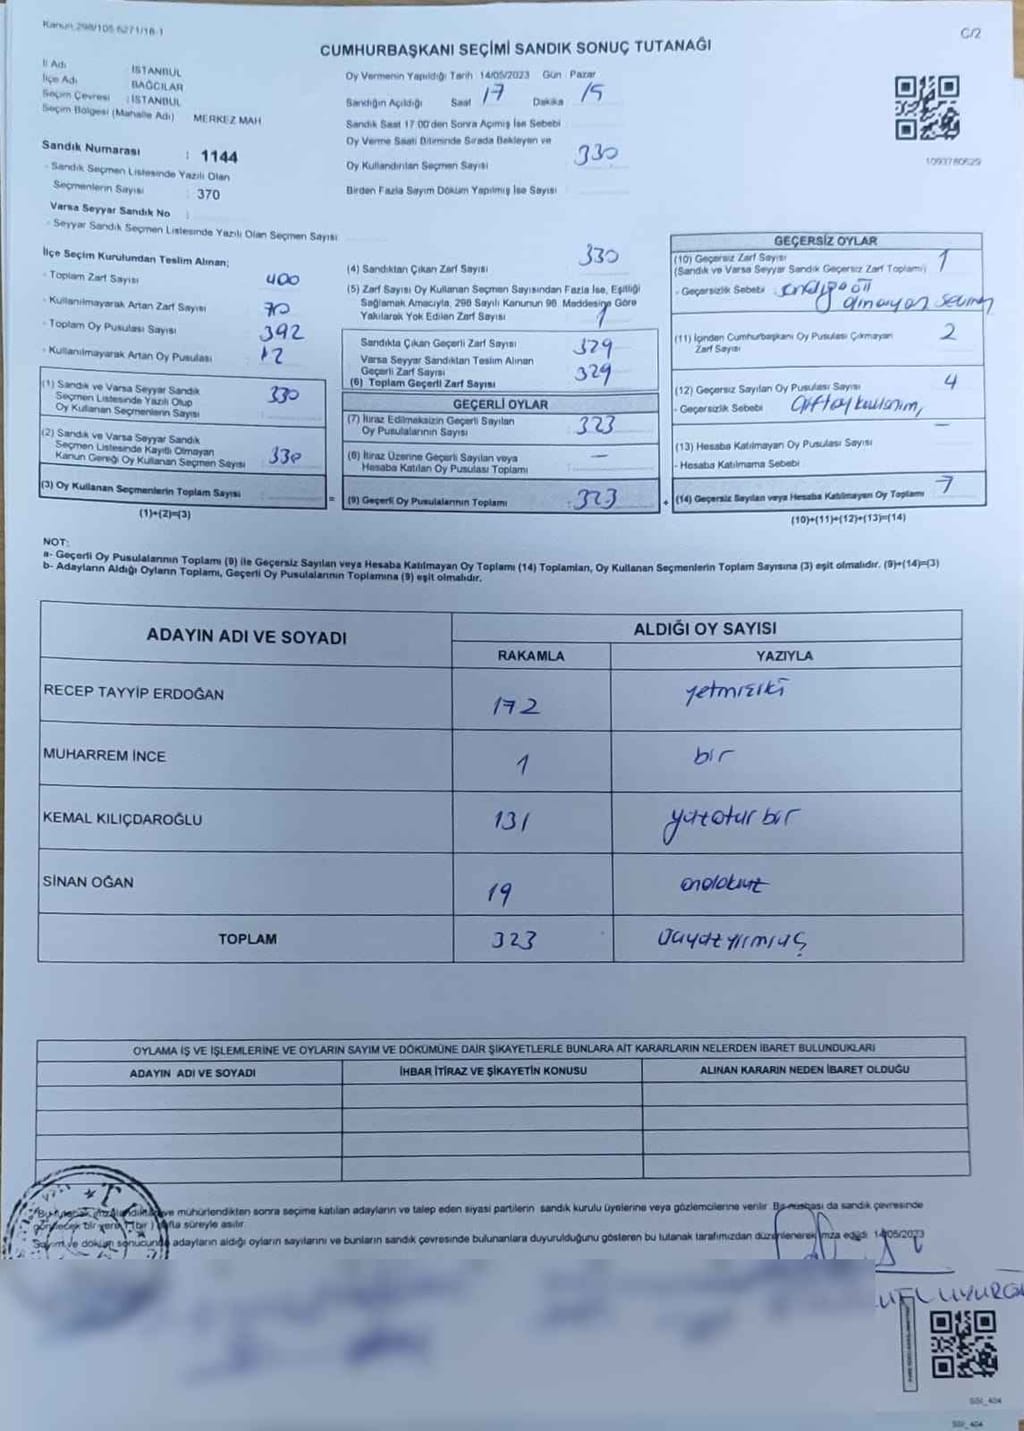 Kanun 298/105-6271/16-1
C/2
CUMHURBAŞKANI SEÇİMİ SANDIK SONUÇ TUTANAĞI
İl Adı İSTANBUL
İlçe Adı BAĞCILAR
Seçim Çevresi : İSTANBUL
Seçim Bölgesi (Mahalle Adı) MERKEZ MAH
Sandık Numarası : 1144
- Sandık Seçmen Listesinde Yazılı Olan
Seçmenlerin Sayısı : 370
Varsa Seyyar Sandık No :
- Seyyar Sandık Seçmen Listesinde Yazılı Olan Seçmen Sayısı
Oy Vermenin Yapıldığı Tarih 14/05/2023 Gün Pazar
Sandığın Açıldığı Saat 17 Dakika 15
Sandık Saat 17:00'den Sonra Açımış İse Sebebi
Oy Verme Saati Bitiminde Sırada Bekleyen ve
Oy Kullandırılan Seçmen Sayısı 330
Birden Fazla Sayım Döküm Yapılmış İse Sayısı
1093780629
İlçe Seçim Kurulundan Teslim Alınan;
- Toplam Zarf Sayısı 400
- Kullanılmayarak Artan Zarf Sayısı 70
- Toplam Oy Pusulası Sayısı 392
- Kullanılmayarak Artan Oy Pusulası 12
(1) Sandık ve Varsa Seyyar Sandık
Seçmen Listesinde Yazılı Olup
Oy Kullanan Seçmenlerin Sayısı 330
(2) Sandık ve Varsa Seyyar Sandık
Seçmen Listesinde Kayıtlı Olmayan
Kanun Gereği Oy Kullanan Seçmen Sayısı 330
(3) Oy Kullanan Seçmenlerin Toplam Sayısı
(1)+(2)=(3)
=
(4) Sandıktan Çıkan Zarf Sayısı 330
(5) Zarf Sayısı Oy Kullanan Seçmen Sayısından Fazla İse, Eşitliği
Sağlamak Amacıyla, 298 Sayılı Kanunun 98. Maddesine Göre
Yakılarak Yok Edilen Zarf Sayısı 1
Sandıkta Çıkan Geçerli Zarf Sayısı 329
Varsa Seyyar Sandıktan Teslim Alınan
Geçerli Zarf Sayısı
(6) Toplam Geçerli Zarf Sayısı 329
GEÇERLİ OYLAR
(7) İtiraz Edilmeksizin Geçerli Sayılan
Oy Pusulalarının Sayısı 323
(8) İtiraz Üzerine Geçerli Sayılan veya
Hesaba Katılan Oy Pusulası Toplamı —
(9) Geçerli Oy Pusulalarının Toplamı : 323
+
GEÇERSİZ OYLAR
(10) Geçersiz Zarf Sayısı 1
(Sandık ve Varsa Seyyar Sandık Geçersiz Zarf Toplamı)
- Geçersizlik Sebebi
olmayan
(11) İçinden Cumhurbaşkanı Oy Pusulası Çıkmayan 2
Zarf Sayısı
(12) Geçersiz Sayılan Oy Pusulası Sayısı 4
- Geçersizlik Sebebi Çift oy kullanım,
(13) Hesaba Katılmayan Oy Pusulası Sayısı —
- Hesaba Katılmama Sebebi
(14) Geçersiz Sayılan veya Hesaba Katılmayan Oy Toplamı 7
(10)+(11)+(12)+(13)=(14)
NOT:
a- Geçerli Oy Pusulalarının Toplamı (9) ile Geçersiz Sayılan veya Hesaba Katılmayan Oy Toplamı (14) Toplamları, Oy Kullanan Seçmenlerin Toplam Sayısına (3) eşit olmalıdır. (9)+(14)=(3)
b- Adayların Aldığı Oyların Toplamı, Geçerli Oy Pusulalarının Toplamına (9) eşit olmalıdır.
ADAYIN ADI VE SOYADI
ALDIĞI OY SAYISI
RAKAMLA YAZIYLA
RECEP TAYYİP ERDOĞAN 172 yetmişiki
MUHARREM İNCE 1 bir
KEMAL KILIÇDAROĞLU 131 yüzotuz bir
SİNAN OĞAN 19 ondokuz
TOPLAM 323 üçyüzyirmiüç
OYLAMA İŞ VE İŞLEMLERİNE VE OYLARIN SAYIM VE DÖKÜMÜNE DAİR ŞİKAYETLERLE BUNLARA AİT KARARLARIN NELERDEN İBARET BULUNDUKLARI
ADAYIN ADI VE SOYADI İHBAR İTİRAZ VE ŞİKAYETİN KONUSU ALINAN KARARIN NEDEN İBARET OLDUĞU
Bu tutanak imzalandıktan ve mühürlendikten sonra seçime katılan adayların ve talep eden siyasi partilerin sandık kurulu üyelerine veya gözlemcilerine verilir. Bir nüshası da sandık çevresinde
görülecek bir yere 1(bir) hafta süreyle asılır.
Sayım ve döküm sonucunda adayların aldığı oyların sayılarını ve bunların sandık çevresinde bulunanlara duyurulduğunu gösteren bu tutanak tarafımızdan düzenlenerek imza edildi. 14/05/2023
SGI_404
SGI_404